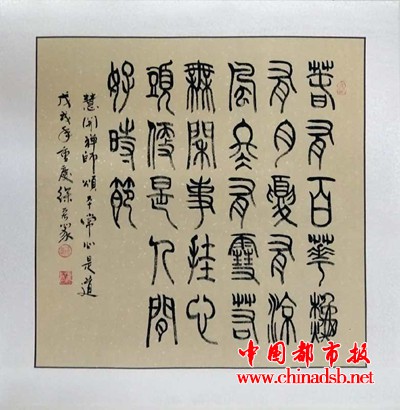 春有百華秋
有月夏有涼
風冬有雪若
無閑事挂心
頭便是人間
好時節
慧開禪師頌平常心是道
戊戌年重慶徐
中国都市报
www.chinadsb.net